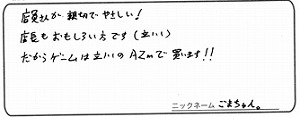 店員さんが親切でやさしい!
店長もおもしろい方です(立川)
だからゲームは立川のAZmで買います!!
ニックネーム ごまちゃん。